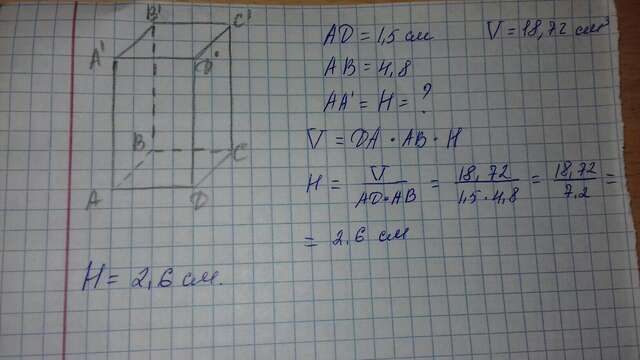 B' C'
A' D'
B C
A D
AD = 1,5 см V = 18,72 см³
AB = 4,8
AA' = H = ?
V = DA · AB · H
H = V / AD·AB = 18,72 / 1,5·4,8 = 18,72 / 7.2 =
= 2,6 см
H = 2,6 см.